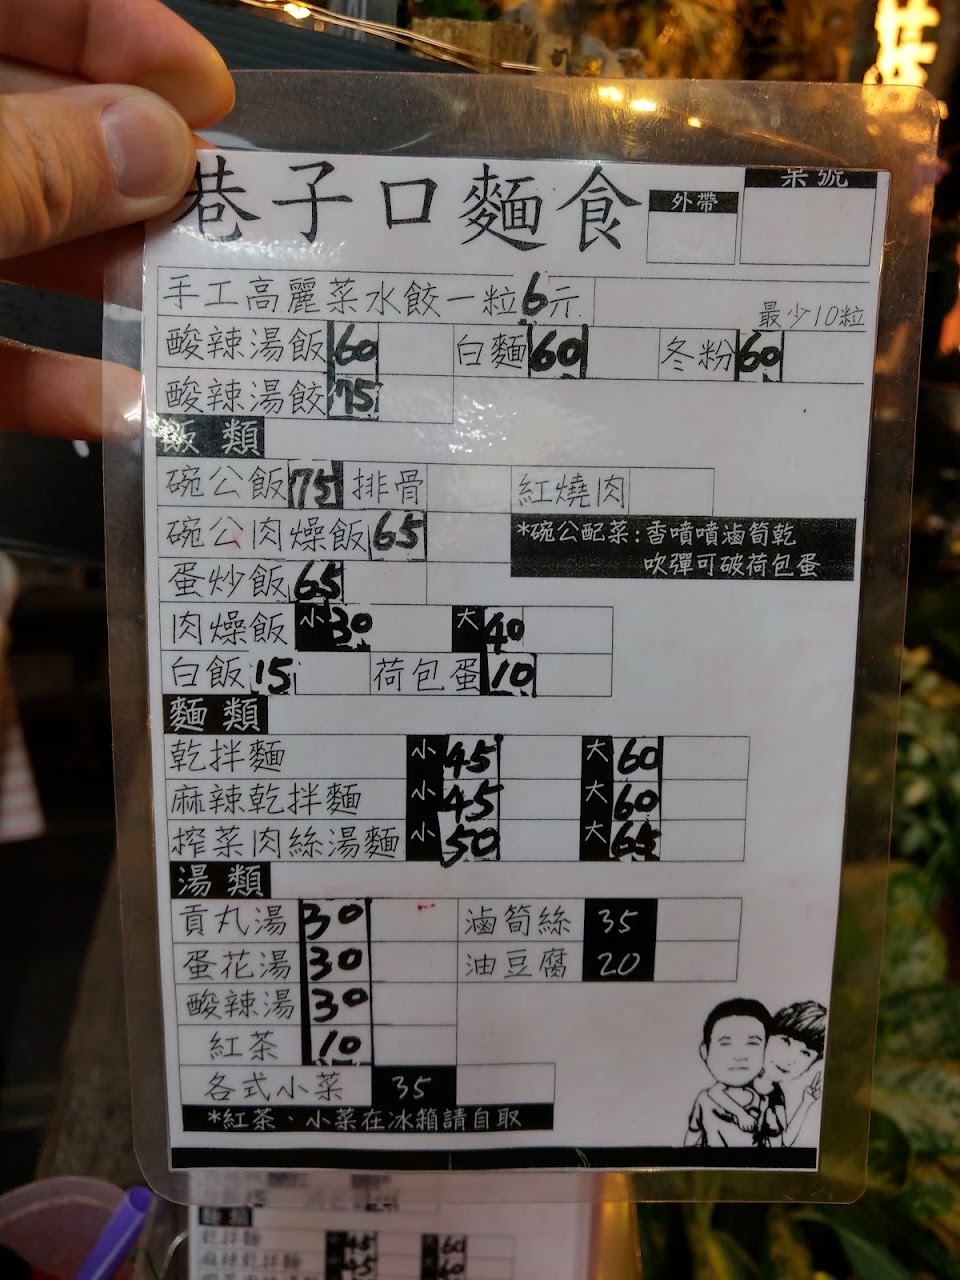 巷子口麵食 外帶 桌號
手工高麗菜水餃一粒6元 最少10粒
酸辣湯飯 60 白麵 60 冬粉 60
酸辣湯餃 75
飯類
碗公飯 75 排骨 紅燒肉
碗公肉燥飯 65 *碗公配菜:香噴噴滷筍乾
吹彈可破荷包蛋
蛋炒飯 65
肉燥飯 小 30 大 40
白飯 15 荷包蛋 10
麵類
乾拌麵 小 45 大 60
麻辣乾拌麵 小 45 大 60
搾菜肉絲湯麵 小 50 大 65
湯類
貢丸湯 30 滷筍絲 35
蛋花湯 30 油豆腐 20
酸辣湯 30
紅茶 10
各式小菜 35
*紅茶、小菜在冰箱請自取
15
小 45 大 60
小 45 大 60